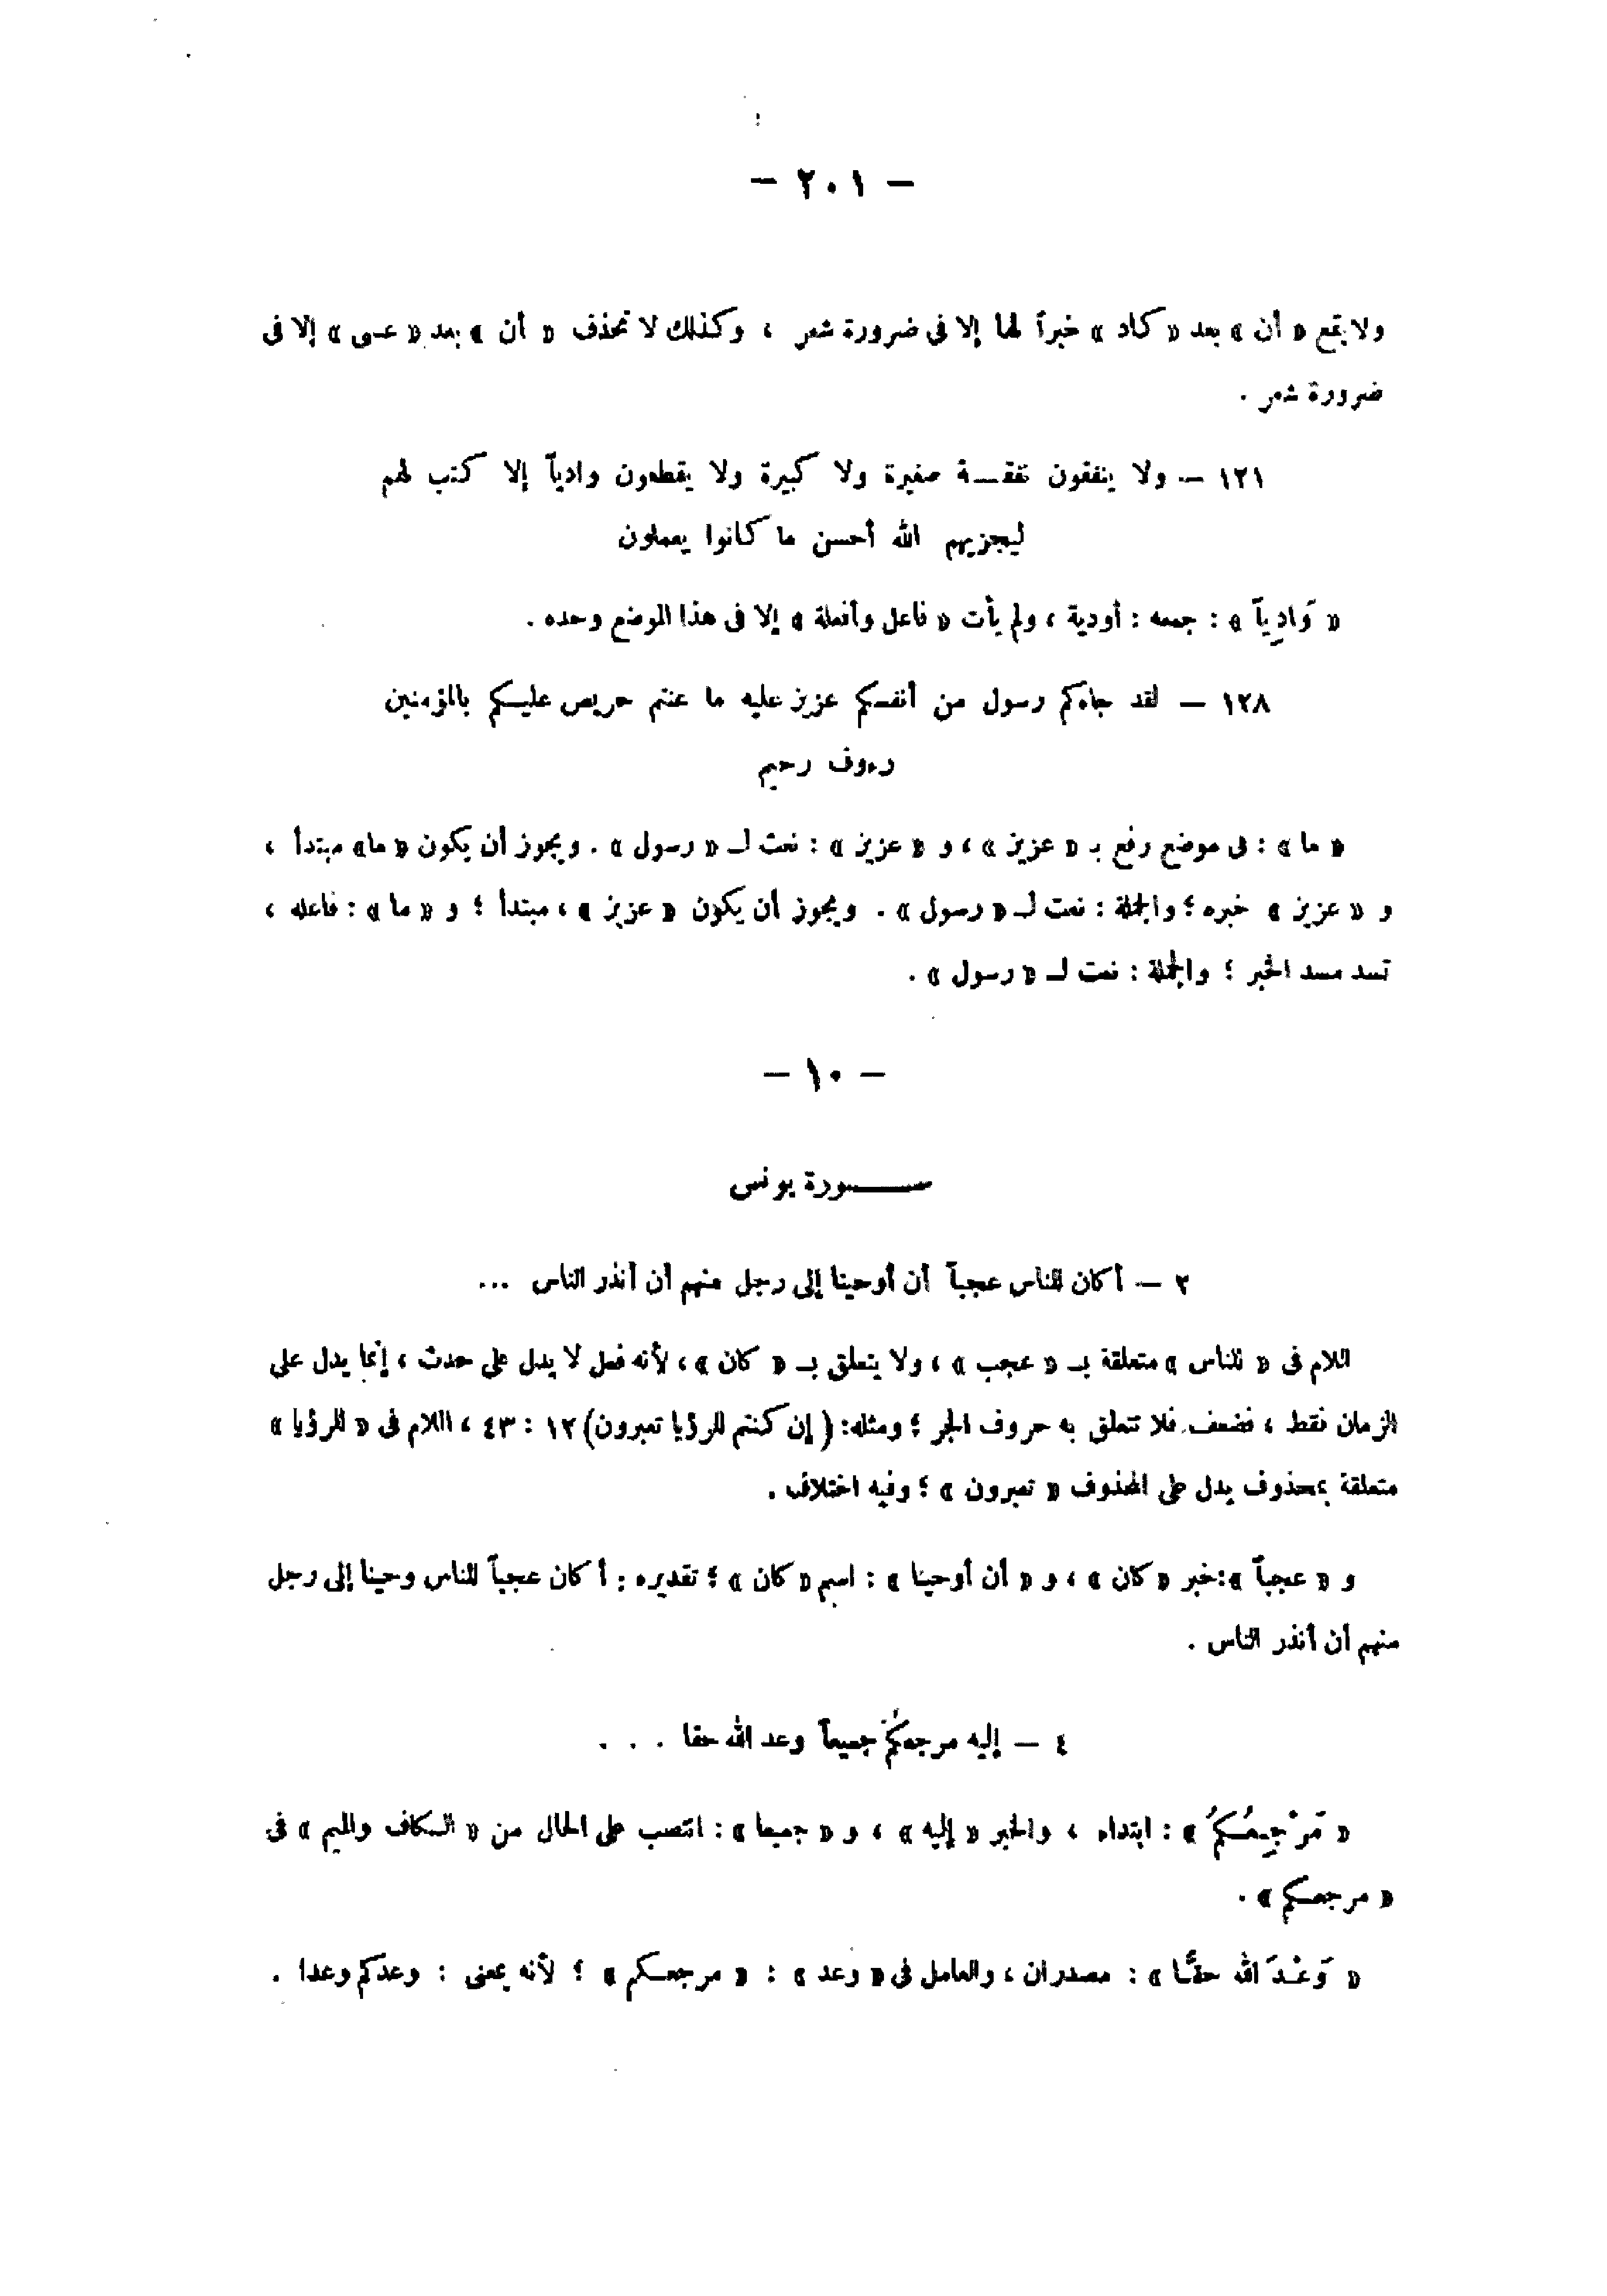 — ٢٠١ —
ولا تقع « أن » بعد « كاد » خبراً لها إلا فى ضرورة شعر ، وكذلك لا تحذف « أن » بعد « عسى » إلا فى
ضرورة شعر .
١٢١ — ولا ينفقون نفقــة صغيرة ولا كبيرة ولا يقطعون وادياً إلا كتب لهم
ليجزيهم الله أحسن ما كانوا يعملون
« وَادِياً » : جمعه : أودية ، ولم يأت « فاعل وأفعلة » إلا فى هذا الموضع وحده .
١٢٨ — لقد جاءكم رسول من أنفسكم عزيز عليه ما عنتم حريص عليكم بالمؤمنين
رءوف رحيم
« ما » : فى موضع رفع بـ « عزيز » ، و « عزيز » : نعت لـ « رسول » . ويجوز أن يكون « ما» مبتدأ ،
و « عزيز » خبره ؛ والجملة : نعت لـ « رسول » . ويجوز أن يكون « عزيز » ، مبتدأ ؛ و « ما » : فاعله ،
تسد مسد الخبر ؛ والجملة : نعت لـ « رسول » .
— ١٠ —
ســـــورة يونس
٢ — أكان للناس عجباً أن أوحينا إلى رجل منهم أن أنذر الناس ...
اللام فى « للناس » متعلقة بـ « عجب » ، ولا يتعلق بـ « كان » ، لأنه فعل لا يدل على حدث ، إنما يدل على
الزمان فقط ، فضعف فلا تتعلق به حروف الجر ؛ ومثله: ( إن كنتم للرؤيا تعبرون) ١٢ : ٤٣ ، اللام فى « للرؤيا »
متعلقة بمحذوف يدل على المحذوف « تعبرون » ؛ وفيه اختلاف .
و « عجباً »:خبر « كان » ، و « أن أوحينا » : اسم « كان » ؛ تقديره : أ كان عجباً للناس وحينا إلى رجل
منهم أن أنذر الناس .
٤ — إليه مرجعكم جميعاً وعد الله حقا . . .
« مَرْجِعُكُمْ » : ابتداء ، والخبر « إليه » ، و « جميعا » : انتصب على الحال من « الكاف والميم » فى
« مرجعكم » .
« وَعْدَ الله حقًّا » : مصدران ، والعامل فى « وعد » : « مرجعكم » ؛ لأنه بمعنى : وعدكم وعدا .